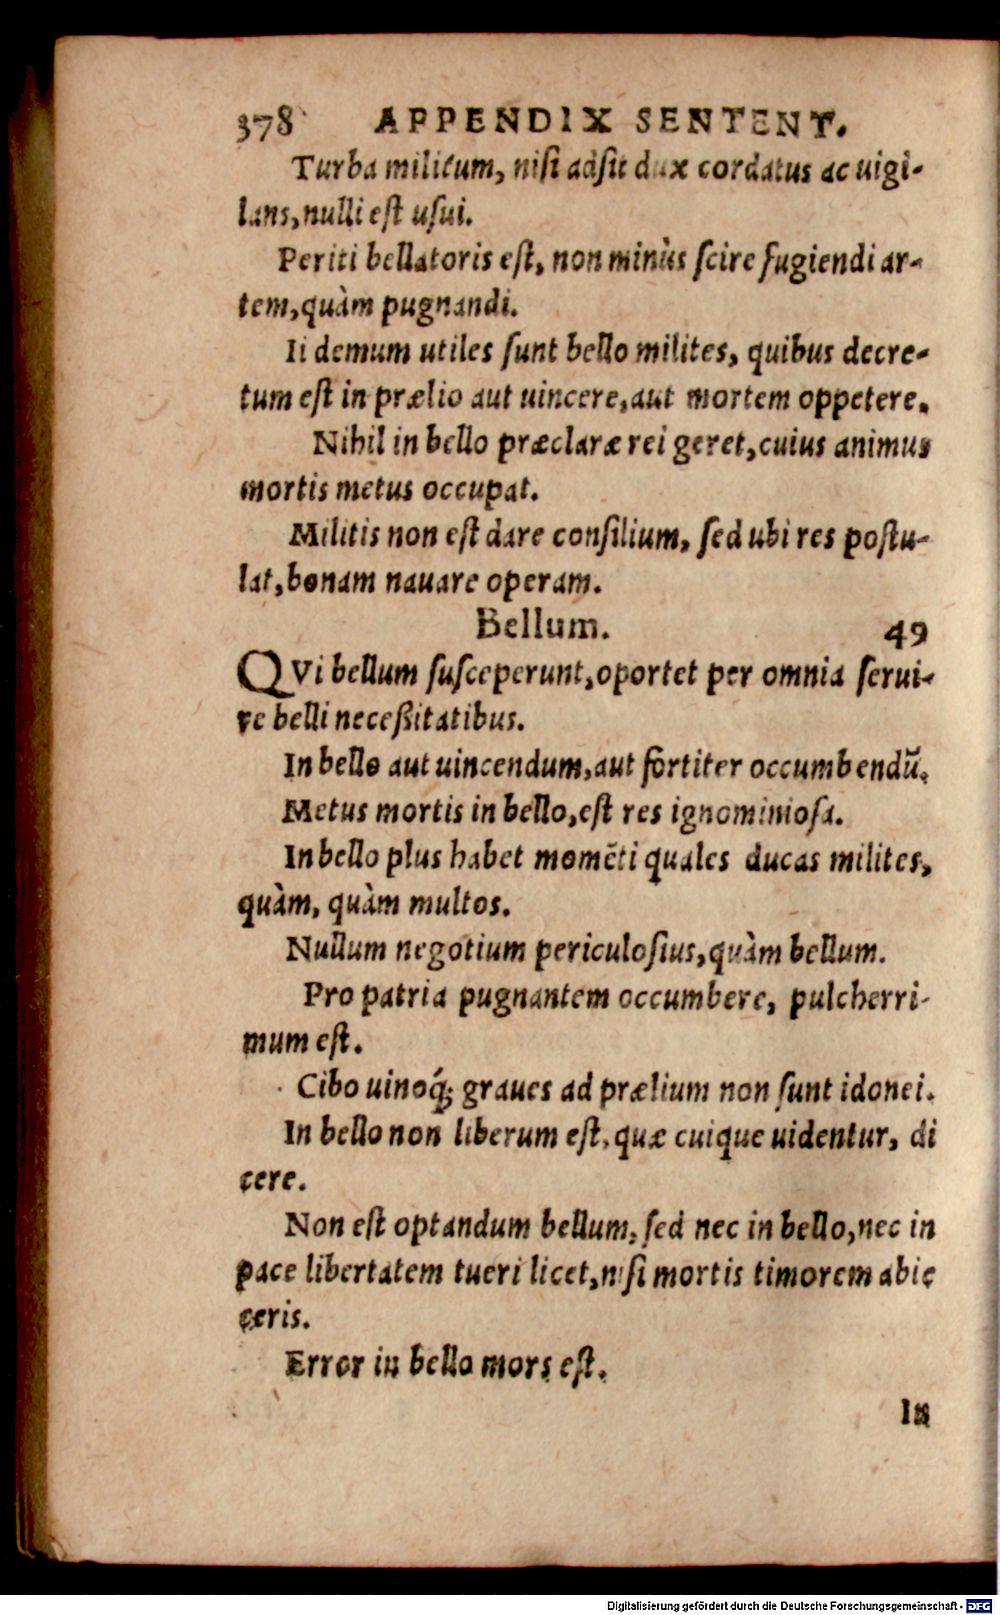 378 APPENDIX SENTENT.
Turba militum, nisi adsit dux cordatus ac uigi-
lans, nulli est usui.
Periti bellatoris est, non minùs scire fugiendi ar-
tem, quàm pugnandi.
Ii demum utiles sunt bello milites, quibus decre-
tum est in prælio aut uincere, aut mortem oppetere.
Nihil in bello præclaræ rei geret, cuius animus
mortis metus occupat.
Militis non est dare consilium, sed ubi res postu-
lat, bonam nauare operam.
Bellum. 49
QVi bellum susceperunt, oportet per omnia serui-
re belli neceßitatibus.
In bello aut uincendum, aut fortiter occumbendũ.
Metus mortis in bello, est res ignominiosa.
In bello plus habet momẽti quales ducas milites,
quàm, quàm multos.
Nullum negotium periculosius, quàm bellum.
Pro patria pugnantem occumbere, pulcherri-
mum est.
Cibo uinoq́; graues ad prælium non sunt idonei.
In bello non liberum est, quæ cuique uidentur, di
cere.
Non est optandum bellum, sed nec in bello, nec in
pace libertatem tueri licet, nisi mortis timorem abie
ceris.
Error in bello mors est.
In
Digitalisierung gefördert durch die Deutsche Forschungsgemeinschaft - DFG